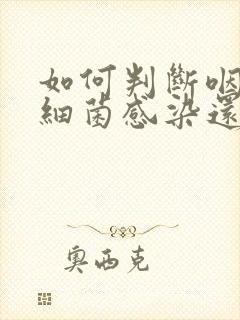 如何判斷咽
細菌感染還
奧西克